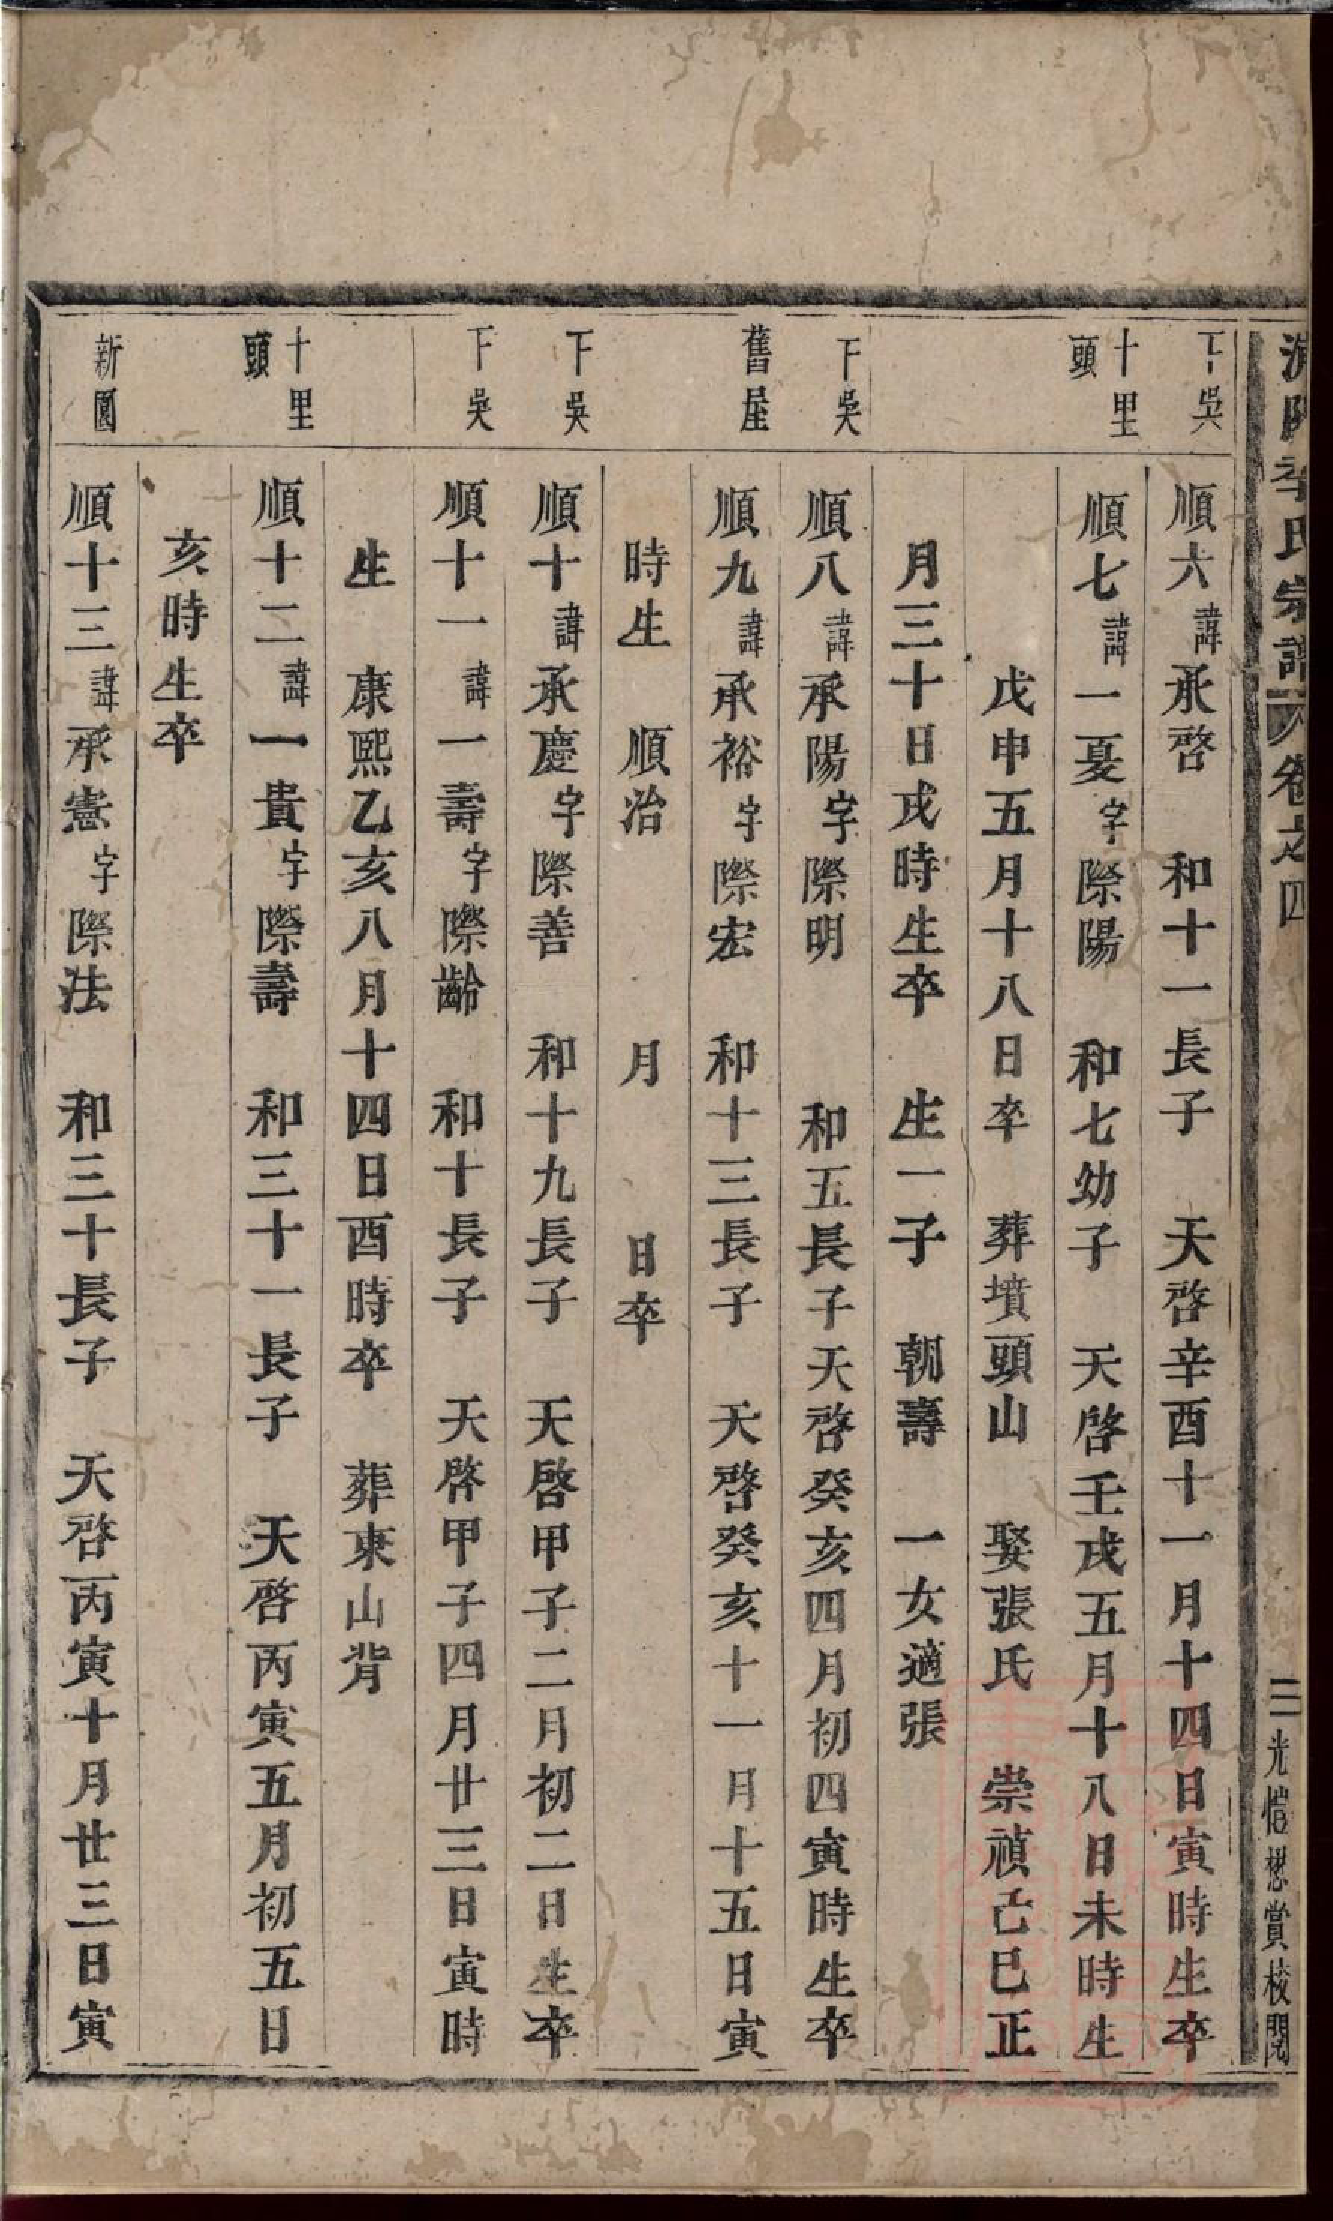 李氏宗譜 卷之四 三 光愷懋賞校閱
下吳 順六諱承啓 和十一長子 天啓辛酉十一月十四日寅時生卒
十里頭 順七諱一夏字際陽 和七幼子 天啓壬戌五月十八日未時生
戊申五月十八日卒 葬墳頭山 娶張氏 崇禎己巳正
月三十日戌時生卒 生一子 朝壽 一女適張
下吳 順八諱承陽字際明 和五長子天啓癸亥四月初四寅時生卒
舊屋 順九諱承裕字際宏 和十三長子 天啓癸亥十一月十五日寅
時生 順治 月 日卒
下吳 順十諱承慶字際善 和十九長子 天啓甲子二月初二日生卒
下吳 順十一諱一壽字際齡 和十長子 天啓甲子四月廿三日寅時
生 康熙乙亥八月十四日酉時卒 葬東山背
十里頭 順十二諱一貴字際壽 和三十一長子 天啓丙寅五月初五日
亥時生卒
新園 順十三諱承憲字際法 和三十長子 天啓丙寅十月廿三日寅